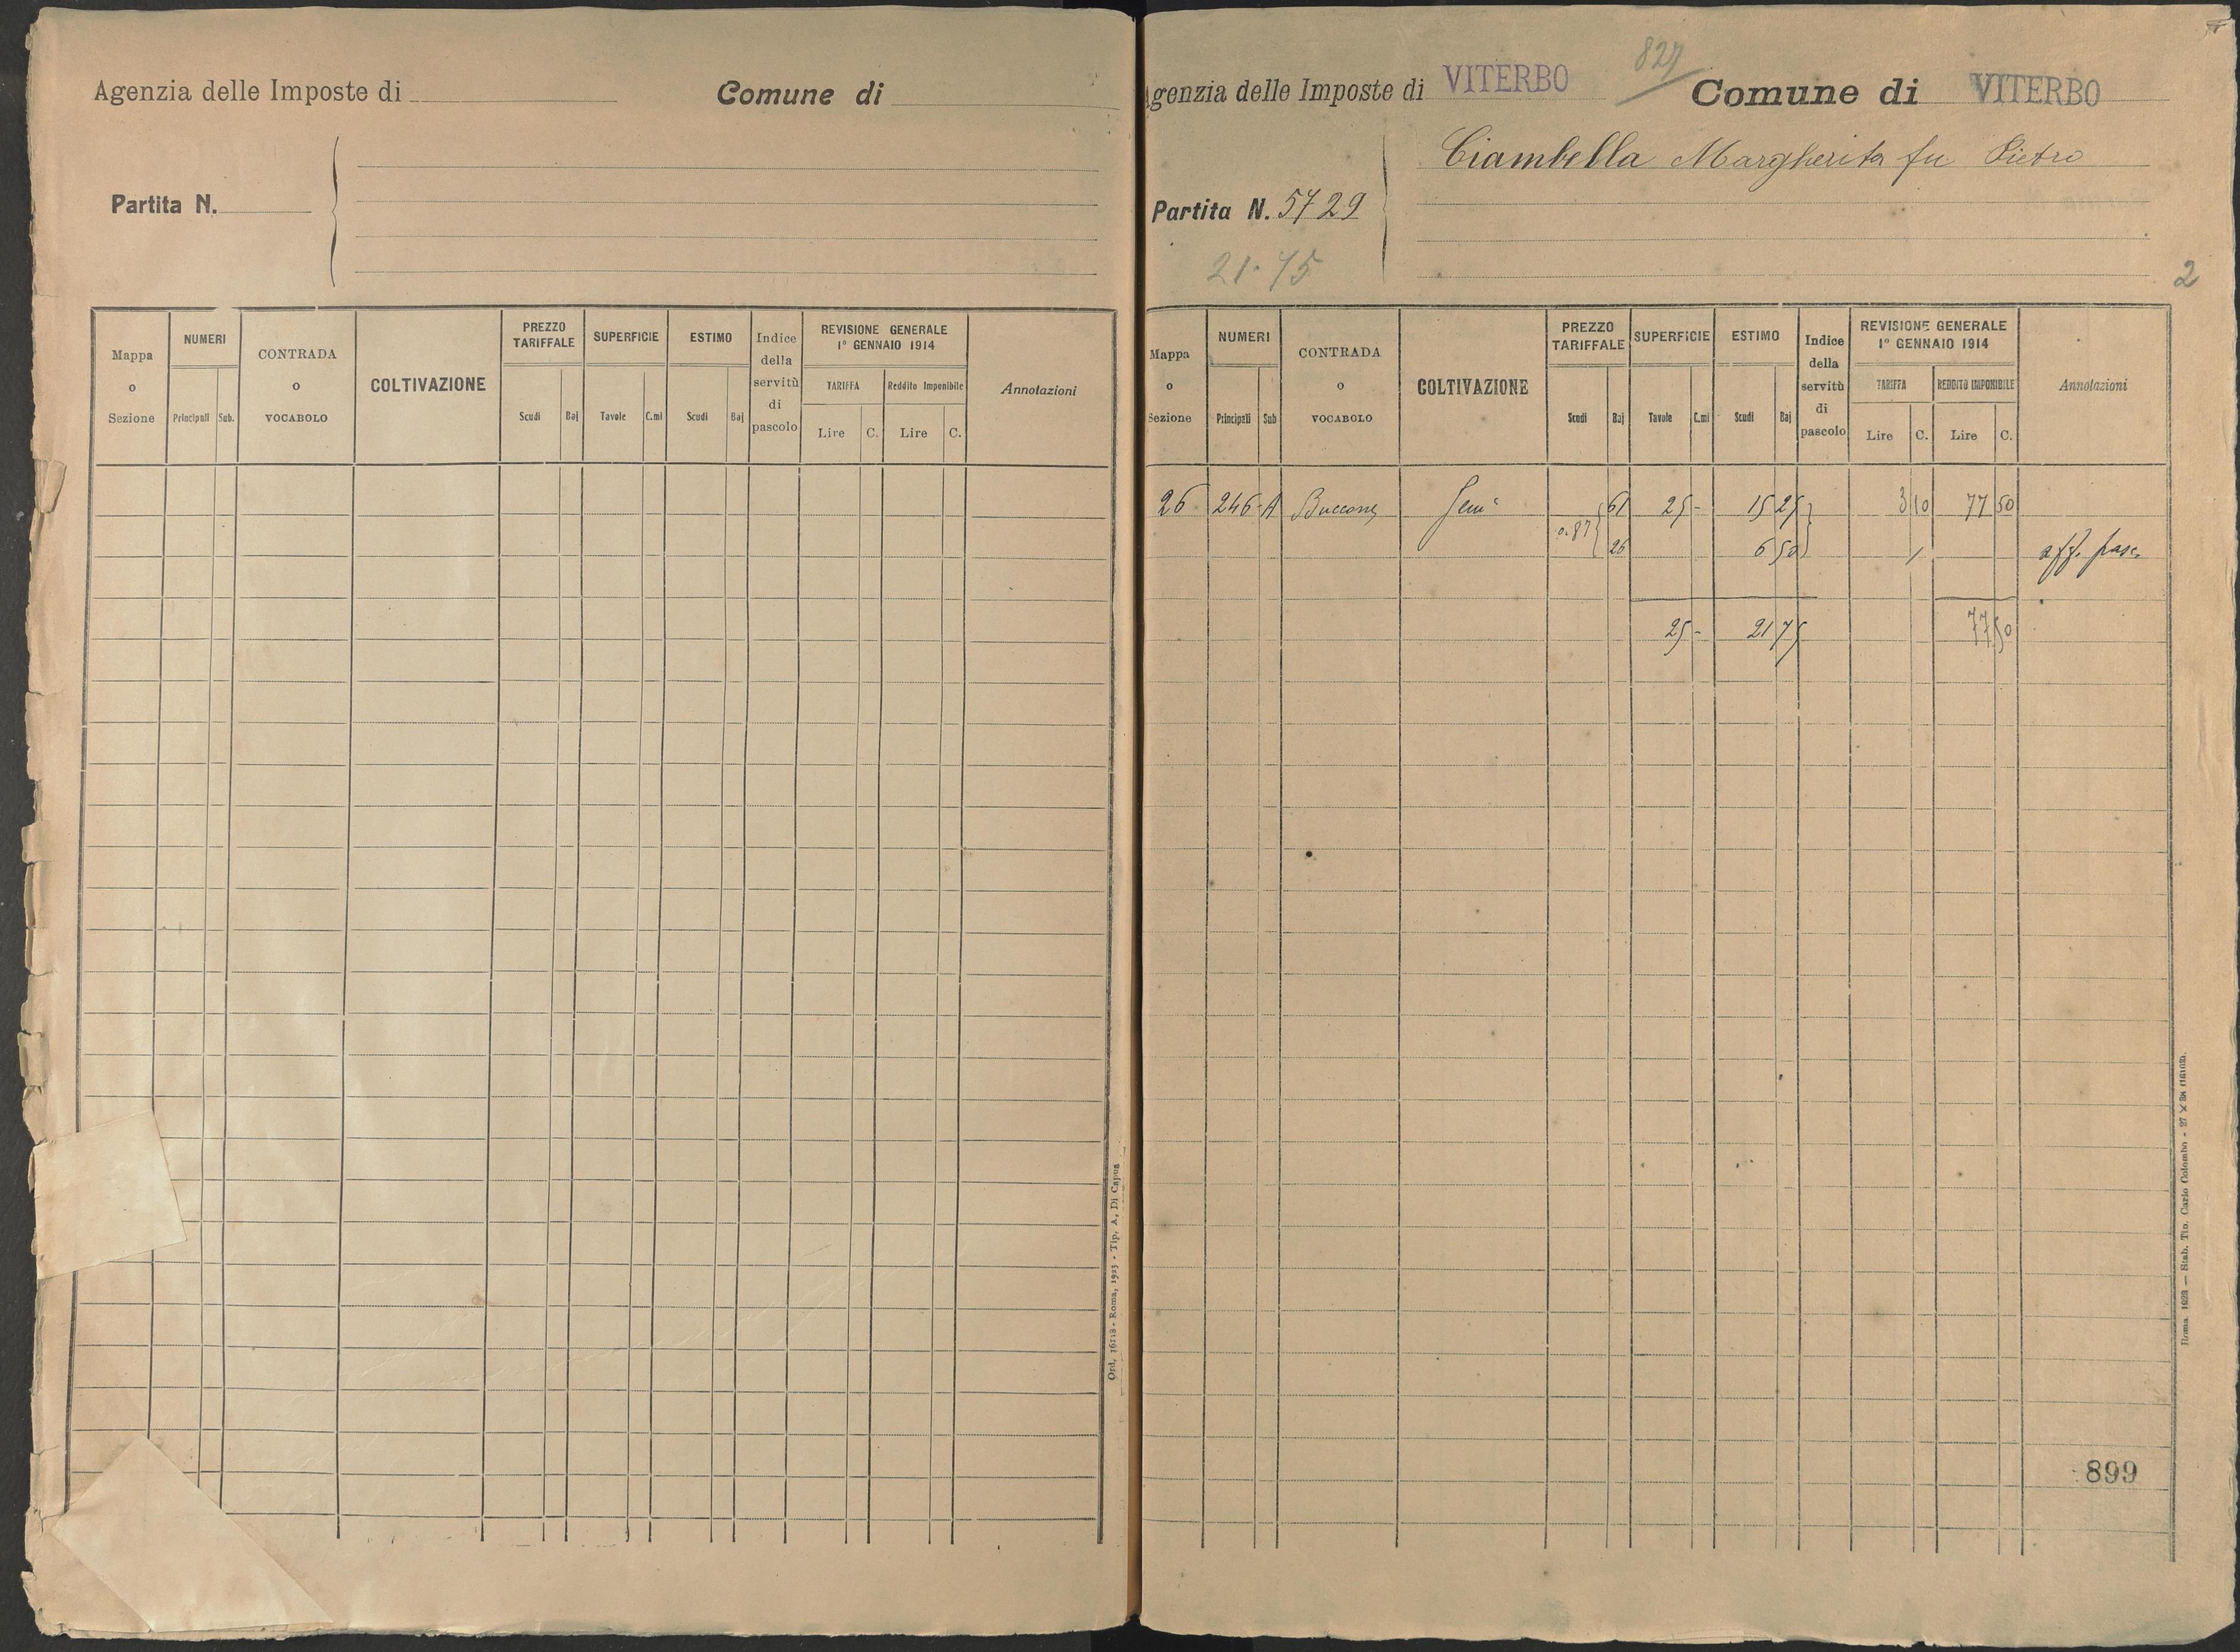 Agenzia delle Imposte di
Comune di
Partita N.
Mappa o Sezione
NUMERI
Principali Sub.
CONTRADA o VOCABOLO
COLTIVAZIONE
PREZZO TARIFFALE
Scudi Baj
SUPERFICIE
Tavole C.mi
ESTIMO
Scudi Baj
Indice della servitù di pascolo
REVISIONE GENERALE
1º GENNAIO 1914
TARIFFA
Lire C.
Reddito Imponibile
Lire C.
Annotazioni
Ord. 16718 - Roma, 1923 - Tip. A. Di Capua
827
Agenzia delle Imposte di VITERBO
Comune di VITERBO
Ciambella Margherita fu Pietro
Partita N. 5729
21.75
2
Mappa o Sezione
NUMERI
Principali Sub
CONTRADA o VOCABOLO
COLTIVAZIONE
PREZZO TARIFFALE
Scudi Baj
SUPERFICIE
Tavole C.mi
ESTIMO
Scudi Baj
Indice della servitù di pascolo
REVISIONE GENERALE
1º GENNAIO 1914
TARIFFA
Lire C.
REDDITO IMPONIBILE
Lire C.
Annotazioni
26 246-A Sem° 61 25 - 15 25 3 10 77 50
0.87 26 6 50 / aff. pasc.
25 - 21 75 77 50
899
Roma, 1923 — Stab. Tip. Carlo Colombo - 27 X 38